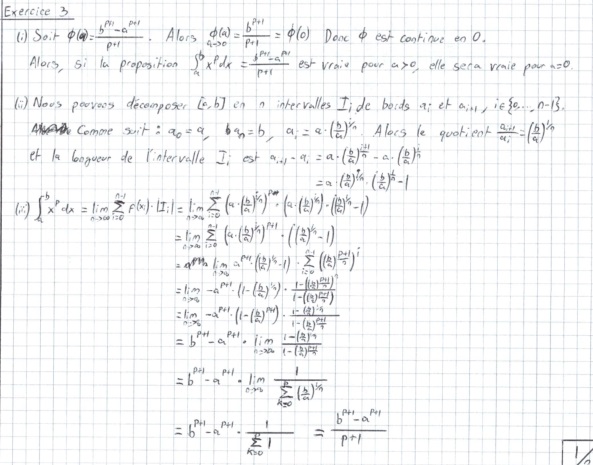 Exercice 3
(i) Soit ϕ(a) = (b^{p+1} - a^{p+1})/(p+1). Alors ϕ(a)_{a→0} = b^{p+1}/(p+1) = ϕ(0) Donc ϕ est continue en 0.
Alors, si la proposition ∫_a^b x^p dx = (b^{p+1} - a^{p+1})/(p+1) est vraie pour a>0, elle sera vraie pour a=0
(ii) Nous pouvons décomposer [a,b] en n intervalles I_i de bords a_i et a_{i+1}, i∈{0,..., n-1}.
Comme suit : a_0 = a, a_n = b, a_i = a·(b/a)^{i/n}. Alors le quotient a_{i+1}/a_i = (b/a)^{1/n}
et la longueur de l'intervalle I_i est a_{i+1} - a_i = a·(b/a)^{(i+1)/n} - a·(b/a)^{i/n}
= a·(b/a)^{i/n}·(b/a)^{1/n} - 1
(iii) ∫_a^b x^p dx = lim_{n→∞} Σ_{i=0}^{n-1} f(x_i)·|I_i| = lim_{n→∞} Σ_{i=0}^{n-1} (a·(b/a)^{i/n})^p · (a·(b/a)^{i/n})·((b/a)^{1/n} - 1)
= lim_{n→∞} Σ_{i=0}^{n-1} (a·(b/a)^{i/n})^{p+1} · ((b/a)^{1/n} - 1)
= lim_{n→∞} a^{p+1}·((b/a)^{1/n} - 1)· Σ_{i=0}^{n-1} ((b/a)^{(p+1)/n})^i
= lim_{n→∞} -a^{p+1}·(1-(b/a)^{1/n})· (1-((b/a)^{(p+1)/n})^n)/(1-((b/a)^{(p+1)/n}))
= lim_{n→∞} -a^{p+1}·(1-(b/a)^{p+1})· (1-(b/a)^{1/n})/(1-(b/a)^{(p+1)/n})
= b^{p+1} - a^{p+1} · lim_{n→∞} (1-(b/a)^{1/n})/(1-(b/a)^{(p+1)/n})
= b^{p+1} - a^{p+1} · lim_{n→∞} 1/(Σ_{k=0}^{p} (b/a)^{k/n})
= b^{p+1} - a^{p+1} · 1/(Σ_{k=0}^{p} 1) = (b^{p+1} - a^{p+1})/(p+1)